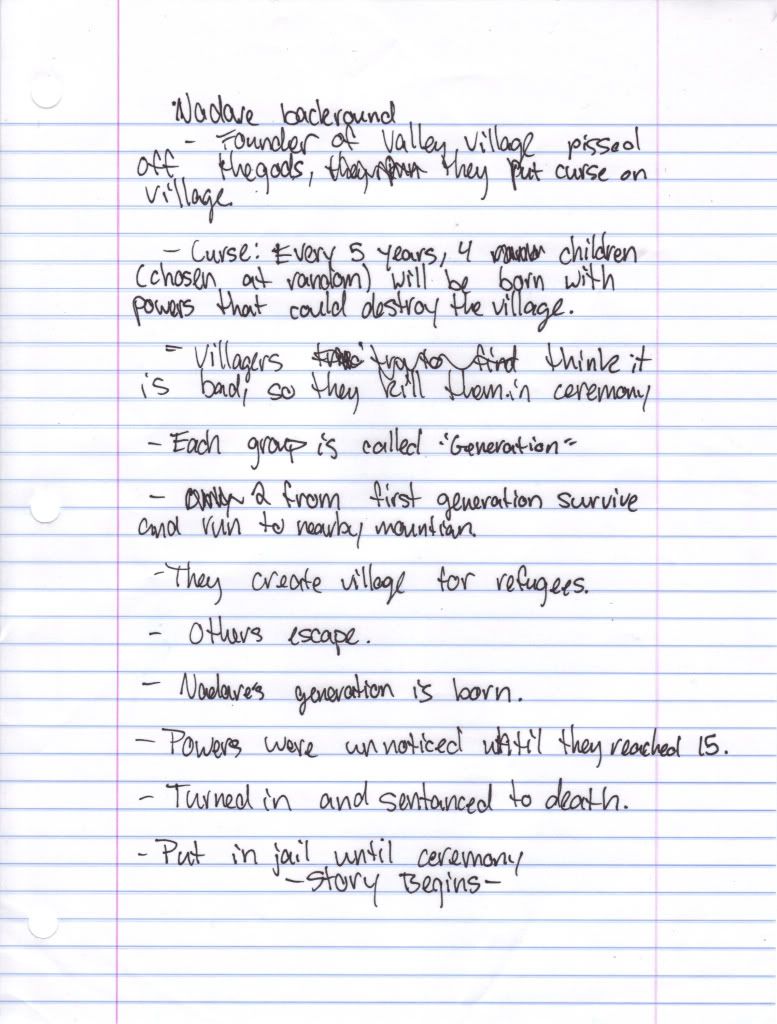 Nadare backround
- Founder of Valley Village pissed
off the gods, they put curse on
village.
- Curse: Every 5 years, 4 children
(chosen at random) will be born with
powers that could destroy the village.
- Villagers try to find think it
is bad, so they kill them in ceremony
- Each group is called "Generation"
- only 2 from first generation survive
and run to nearby mountian.
- They create village for refugees.
- Others escape.
- Nadare's generation is born.
- Powers were unnoticed until they reached 15.
- Turned in and sentanced to death.
- Put in jail until ceremony
- Story Begins -